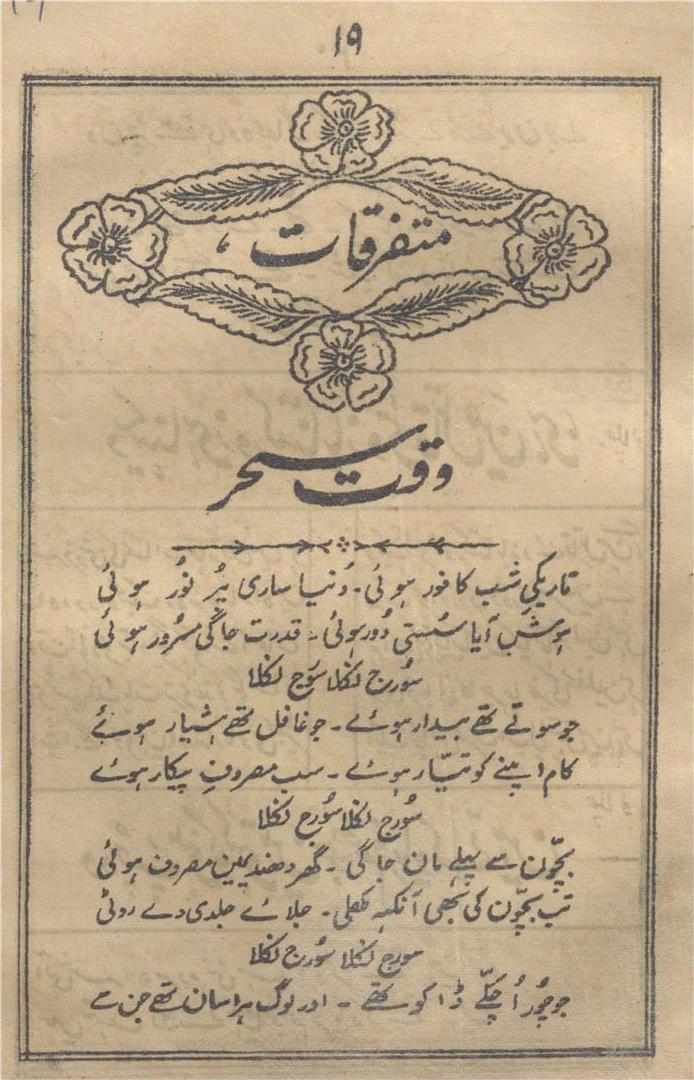 ۱۹
متفرقات
وقت سحر
تاریکیِ شب کافور ہوئی ۔ دُنیا ساری پُر نُور ہوئی
ہوش آیا سُستی دُور ہوئی ۔ قدرت جاگی مسرُور ہوئی
سُورج نکلا سُورج نکلا
جو سوتے تھے بیدار ہوئے ۔ جو غافل تھے ہشیار ہوئے
کام اپنے کو تیّار ہوئے ۔ سب مصروفِ پیکار ہوئے
سُورج نکلا سُورج نکلا
بچّوں سے پہلے ماں جاگی ۔ گھر دھندیمیں مصروف ہوئی
تب بچّوں کی بھی آنکہہ کھلی ۔ چلائے جلدی دے روٹی
سورج نکلا سُورج نکلا
جو چُور اُچکّے ڈاکو تھے ۔ اور لوگ ہراسان تھے جن سے